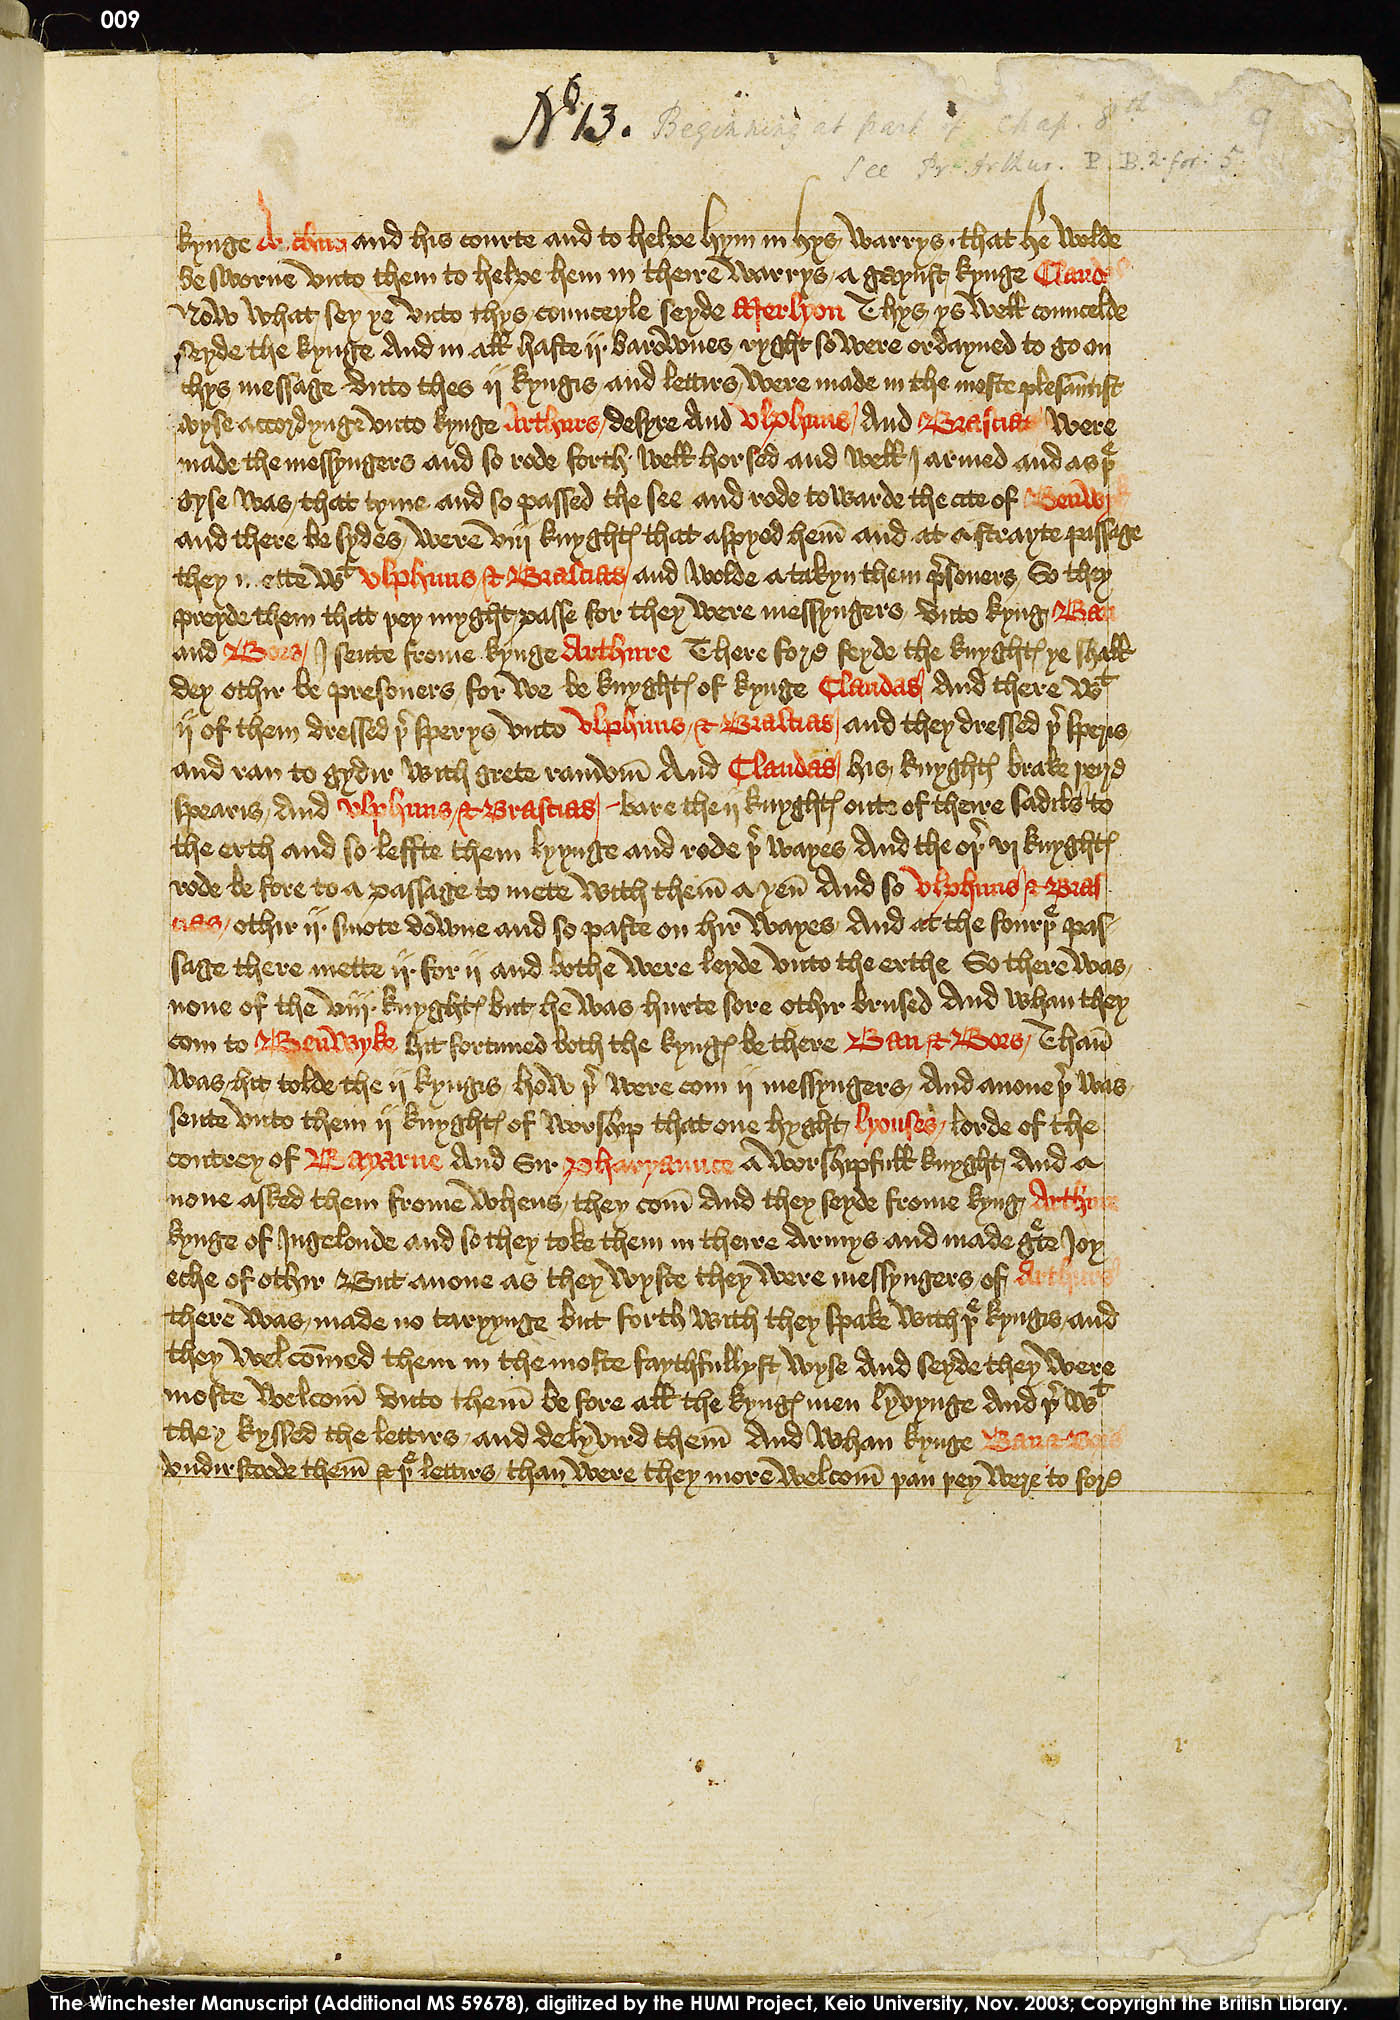 009
No 13. Beginning at part of Chap. 8th 9
See Pr. Arthur. P. B. 2. for: 5.
kynge Arthure and his courte and to helpe hym in hys warrys · that he wolde
be sworne vnto them to helpe hem in theire warrys a gaynst kynge Claudas
Now what sey ye vnto thys counceyle seyde Merlyon Thys ys well councelde
seyde the kynge And in all haste ij · barownes ryght so were ordayned to go on
thys message vnto thes ij kyngis and lettirs were made in the moste plesāntist
wyse accordynge vnto kynge Arthurs desyre And Vlphuns And Brascias were
made the messyngers and so rode forth well horsed and well I armed and as þe
gyse was that tyme and so passed the see and rode towarde the cite of Benwyk
and there be sydes were viij knyghtes that aspyed hem̄ and at a strayte passage
they mette wt Vlphuns & Brascias and wolde a takyn them p̄soners So they
preyde them that þey myght passe for they were messyngers vnto kyng Ban
and Bors I sente frome kynge Arthure There fore seyde the knyghtes ye shall
dey othir be presoners for we be knyghtes of kynge Claudas And there wt
ij of them dressed þr sperys vnto Vlphuns & Brascias and they dressed þr sperys
and ran to gydir with grete raundom̄ And Claudas his knyghtes brake þeire
spearis And Vlphuns & Brascias bare the ij knyghtes oute of theire sadils to
the erth and so leffte them lyynge and rode þr wayes And the oþr vj knyghtes
rode be fore to a passage to mete with them̄ a yen̄ And so Vlphuns & Bras
cias othir ij · smote downe and so paste on hir wayes And at the fourþe pas
sage there mette ij · for ij and bothe were leyde vnto the erthe So there was
none of the viij · knyghtes but he was hurte sore othir brused And whan they
com to Benwyke hit fortuned both the kynges be there Ban & Bors Than̄
was hit tolde the ij kyngis how þr were com ij messyngers And anone þr was
sente vnto them ij knyghtes of worship that one hyght lyonses lorde of the
contrey of Payarne And Sir Phariaunce a worshipfull knyght And a
none asked them frome whens they com̄ And they seyde frome kyng Arthure
kynge of Ingelonde and so they toke them in theire Armys and made gret Joy
eche of othir But anone as they wyste they were messyngers of Arthurs
there was made no taryynge but forth with they spake with þe kyngis and
they welcōmed them in the moste faythfullyst wyse And seyde they were
moste welcom̄ vnto them̄ be fore all the kynges men lyvynge And þr wt
they kyssed the lettirs and delyvird them̄ And whan kynge Ban & Bors
vndirstoode them̄ & þe lettirs than were they more welcom̄ þan þey were to fore
The Winchester Manuscript (Additional MS 59678), digitized by the HUMI Project, Keio University, Nov. 2003; Copyright the British Library.